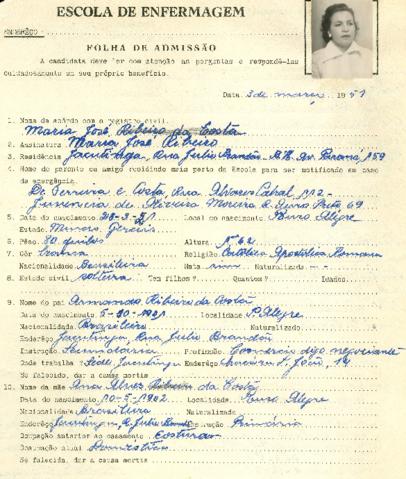 ESCOLA DE ENFERMAGEM
ENDEREÇO
FOLHA DE ADMISSÃO
A candidata deve ler com atenção as perguntas e respondê-las
cuidadosamente em seu próprio benefício.
Data 3 de março, 1951
1. Nome de acôrdo com o registro civil.
Maria José Ribeiro da Costa
2. Assinatura Maria José Ribeiro
3. Residência Jacutinga, Rua Julio Brandão - B.H. Av. Paraná, 159
4. Nome do parente ou amigo residindo mais perto da Escola para ser notificado em caso
de emergência.
Dr. Ferreira e Costa, Rua Alvares Cabral,
de Oliveira Moreira R. 69
5. Data do nascimento Local do nascimento Pouso Alegre
Estado Minas Gerais
6. Pêso. 50 quilos Altura 1m 62
7. Côr branca Religião Católica Apostólica Romana
Nacionalidade Brasileira Nata sim Naturalizada - -
8. Estado civil solteira Tem filhos? Quantos? Idades.
9. Nome do pai Armando Ribeiro da Costa
Data do nascimento 5-10-1921 Localidade P. Alegre
Nacionalidade Brasileiro Naturalizado.
Endereço Jacutinga, Rua Julio Brandão
Instrução Secundaria Profissão Comercio digo negociante
Onde trabalha Jacutinga Endereço S. João,
Se falecido, dar a causa mortis
10. Nome da mãe Ana Alves Ribeiro da Costa
Data do nascimento Localidade. Pouso Alegre
Nacionalidade Brasileira Naturalizada
Endereço Jacutinga R. Julio Brandão Instrução Primária
Ocupação anterior ao casamento Costuras
Ocupação atual Domestica
Se falecida, dar a causa mortis